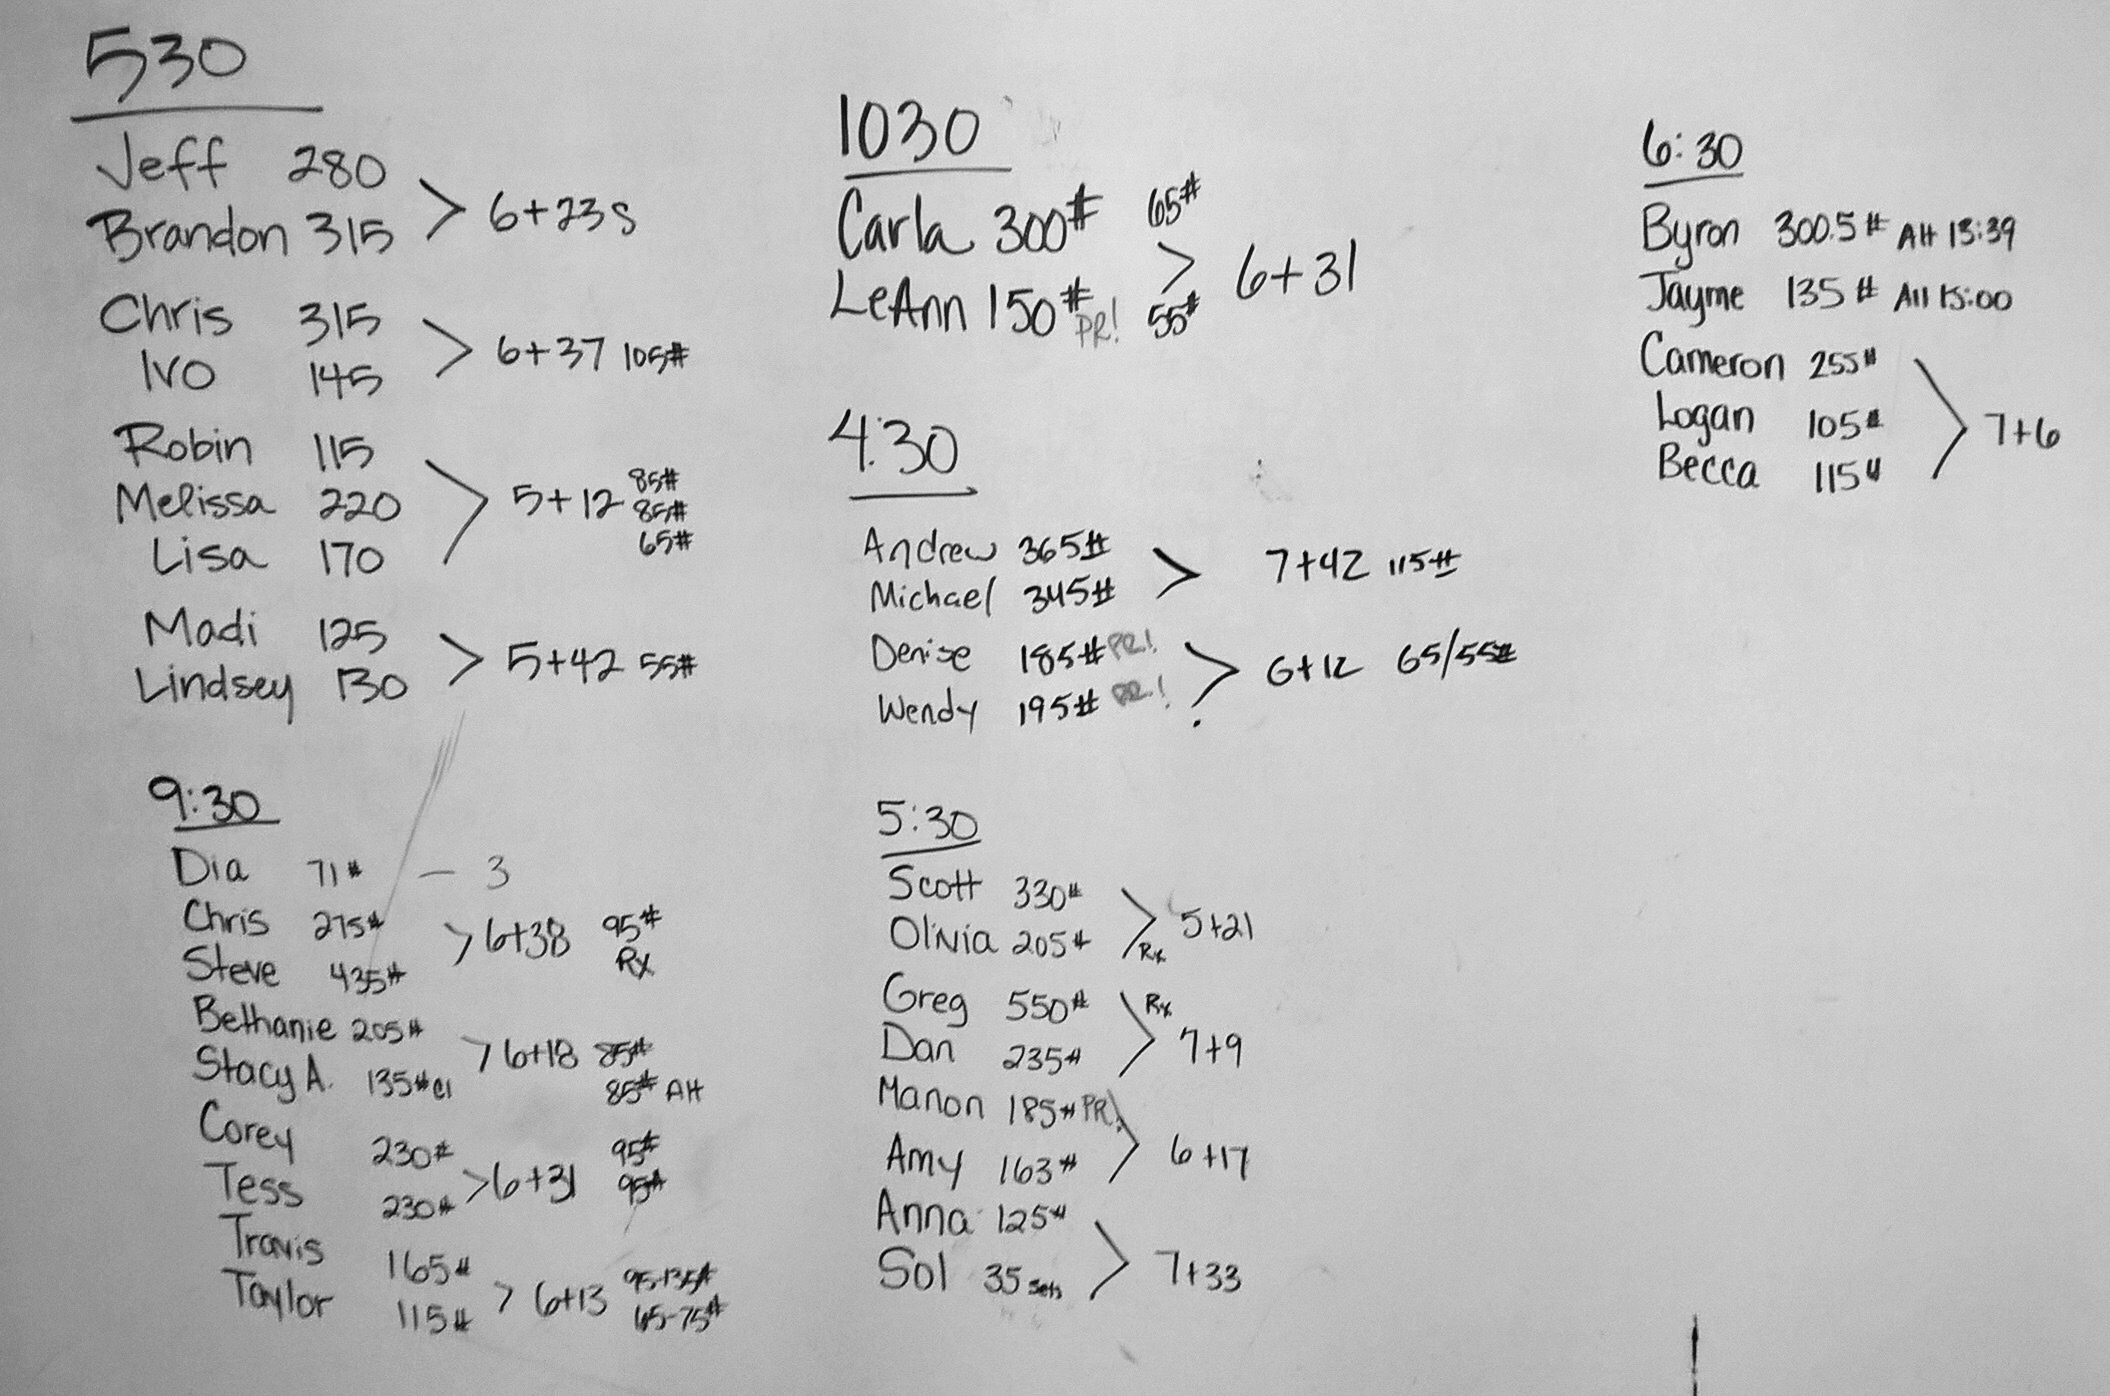 530
Jeff 280
Brandon 315 > 6+23s
Chris 315
Ivo 145 > 6+37 105#
Robin 115
Melissa 220 > 5+12 85# 85# 65#
Lisa 170
Madi 125
Lindsey 130 > 5+42 55#
9:30
Dia 71# — 3
Chris 275#
Steve 435# > 6+38 95# Rx
Bethanie 205#
Stacy A. 135# cl > 6+18 85# 85# Alt
Corey 230#
Tess 230# > 6+31 95# 95#
Travis 165#
Taylor 115# > 6+13 95-135# 65-75#
1030
Carla 300# 65#
LeAnn 150# PR! 55# > 6+31
4:30
Andrew 365#
Michael 345# > 7+42 115#
Denise 185# PR!
Wendy 195# PR! > 6+12 65/55#
5:30
Scott 330#
Olivia 205# > Rx 5+21
Greg 550# Rx
Dan 235# > 7+9
Manon 185# PR!
Amy 163# > 6+17
Anna 125#
Sol 35 sets > 7+33
6:30
Byron 300.5# Alt 13:39
Jayme 135# Alt 15:00
Cameron 255#
Logan 105# > 7+6
Becca 115#